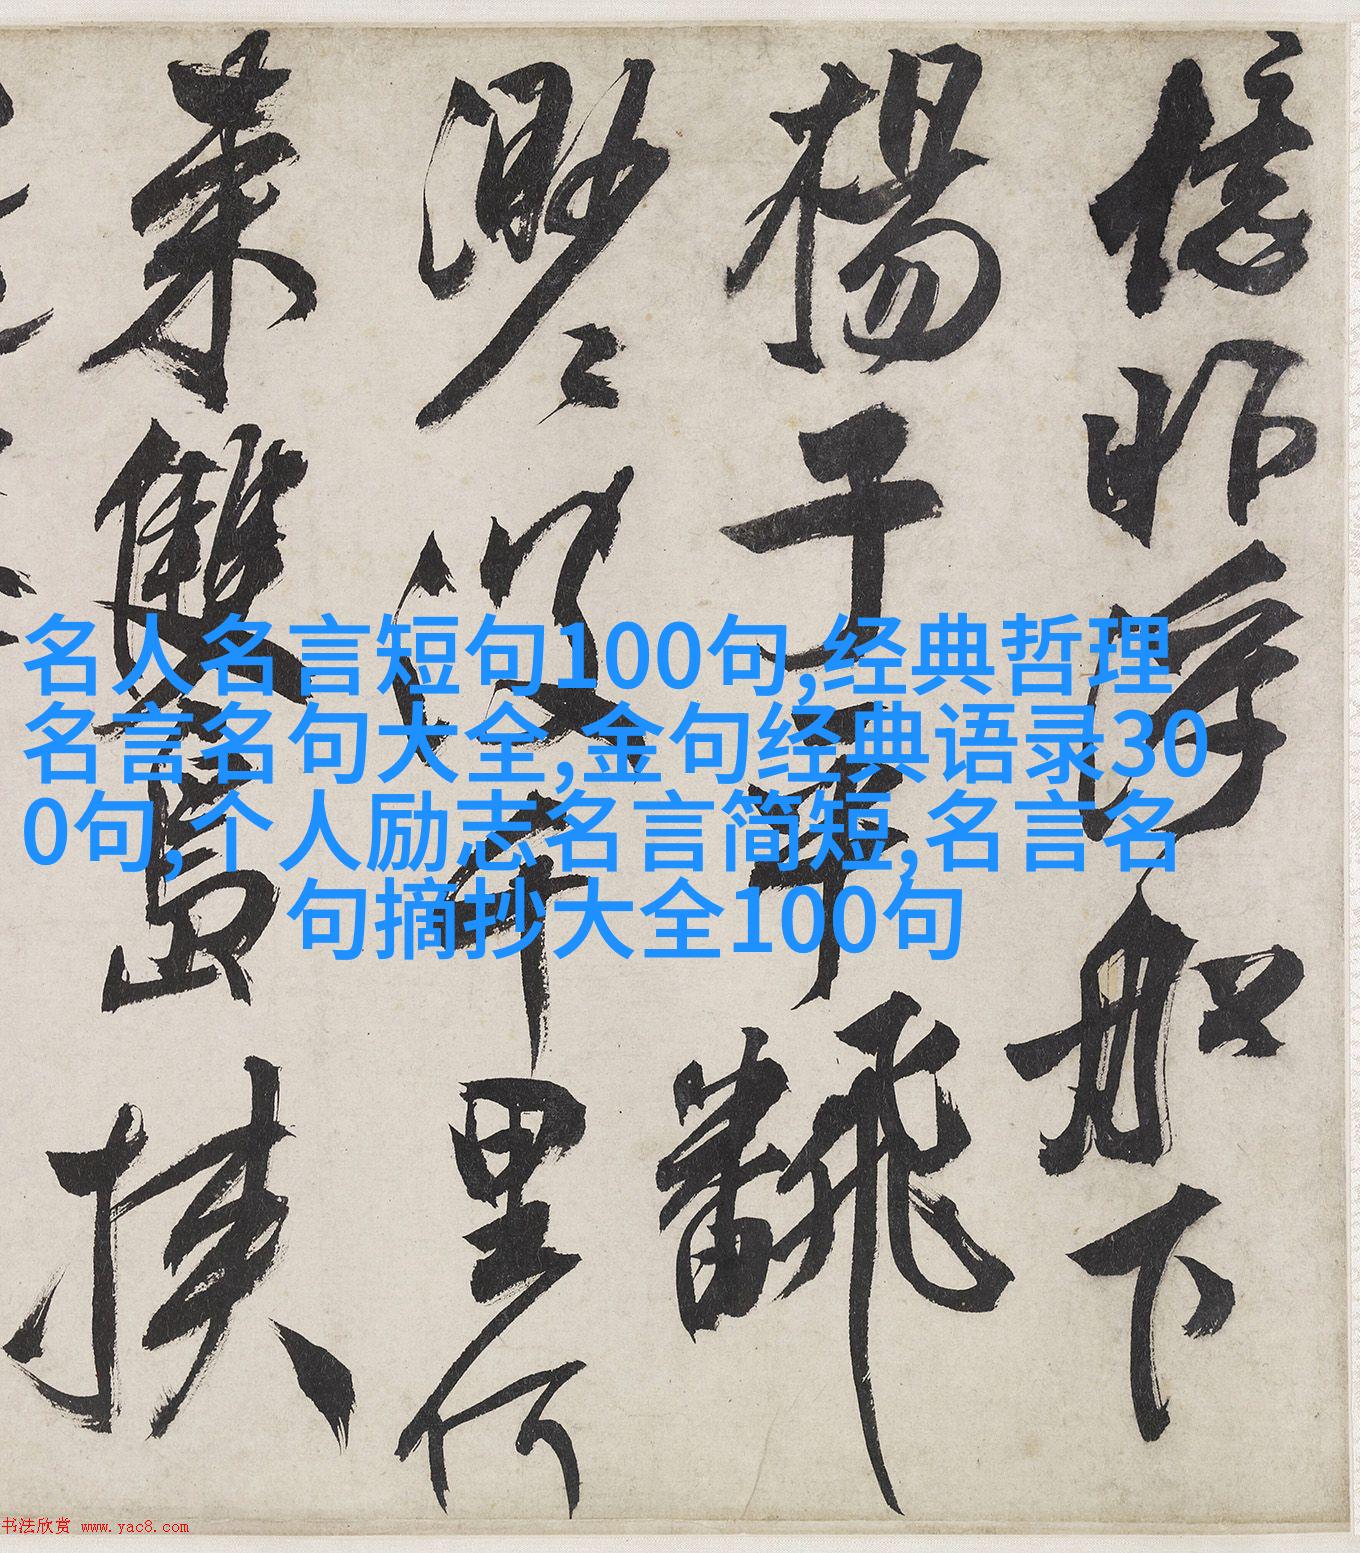 憶昨浮船下
楊飜
渺里何
來雙島挾
名人名言短句100句,经典哲理
名言名句大全,金句经典语录30
0句,个人励志名言简短,名言名
句摘抄大全100句
书法欣赏 www.yac8.com